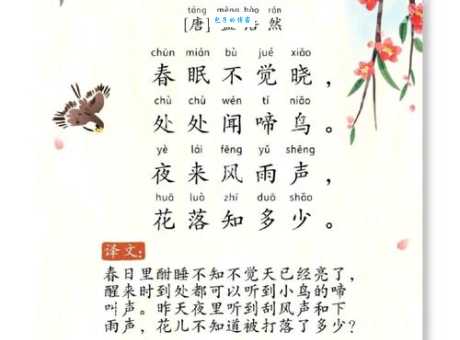 táng mèng hào rán
[唐] 孟浩然
chūn mián bù jué xiǎo
春眠不觉晓，
chù chù wén tí niǎo
处处闻啼鸟。
yè lái fēng yǔ shēng
夜来风雨声，
huā luò zhī duō shǎo
花落知多少。
译文：
春日里酣睡不知不觉天已经亮了，
醒来时到处都可以听到小鸟的啼
叫声。昨天夜里听到刮风声和下
雨声，花儿不知道被打落了多少？